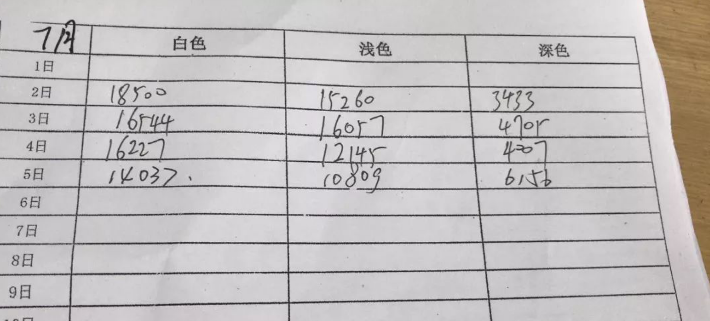 7/月 白色 浅色 深色
1日
2日 18500 15260 3433
3日 16544 16057 4705
4日 16227 12145 4007
5日 14037. 10809 6156
6日
7日
8日
9日